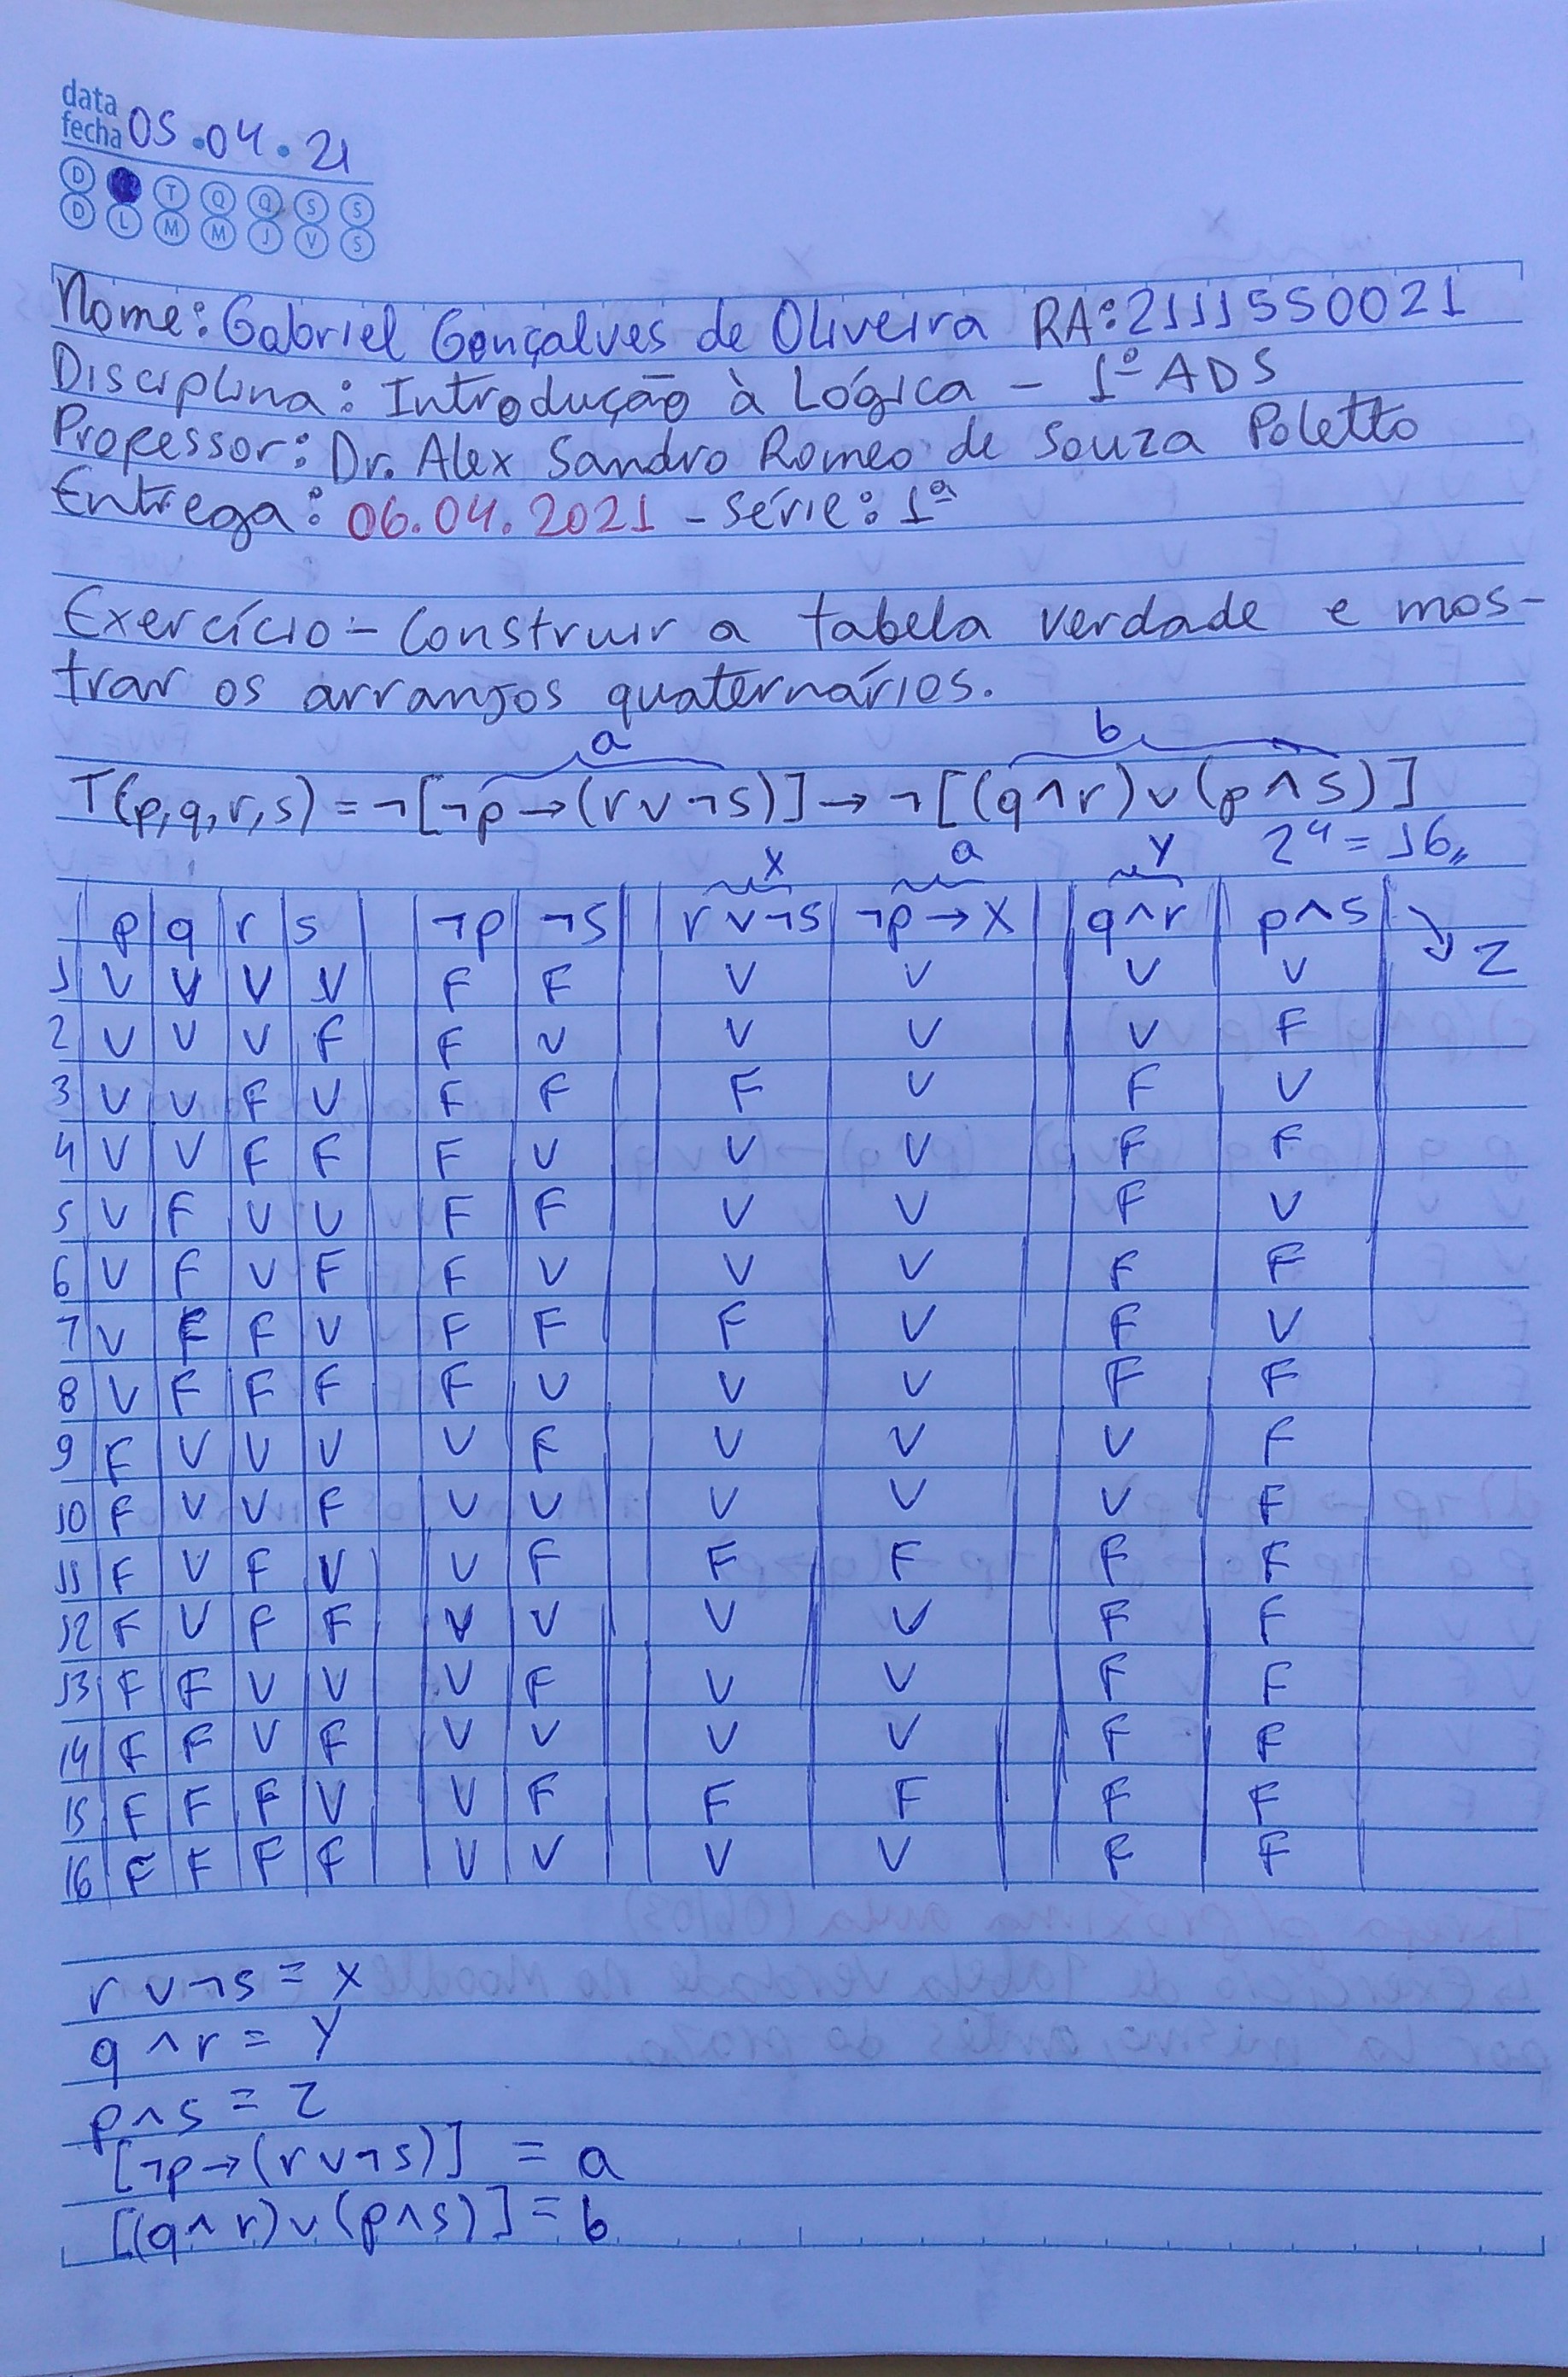 data
fecha 05.04.21
D T Q Q S S
D L M M J V S
Nome: Gabriel Gonçalves de Oliveira RA: 2111550021
Disciplina: Introdução à Lógica - 1º ADS
Professor: Dr. Alex Sandro Romeo de Souza Poletto
Entrega: 06.04.2021 - série: 1ª
Exercício - Construir a tabela verdade e mos-
trar os arranjos quaternários.
a b
T(p,q,r,s) = ¬[¬p→(r∨¬s)]→¬[(q∧r)∨(p∧s)]
2⁴ = 16,,
x a y
p q r s ¬p ¬s r∨¬s ¬p→x q∧r p∧s → z
1 V V V V F F V V V V
2 V V V F F V V V V F
3 V V F V F F F V F V
4 V V F F F V V V F F
5 V F V V F F V V F V
6 V F V F F V V V F F
7 V F F V F F F V F V
8 V F F F F V V V F F
9 F V V V V F V V V F
10 F V V F V V V V V F
11 F V F V V F F F F F
12 F V F F V V V V F F
13 F F V V V F V V F F
14 F F V F V V V V F F
15 F F F V V F F F F F
16 F F F F V V V V F F
r∨¬s = x
q∧r = y
p∧s = z
[¬p→(r∨¬s)] = a
[(q∧r)∨(p∧s)] = b